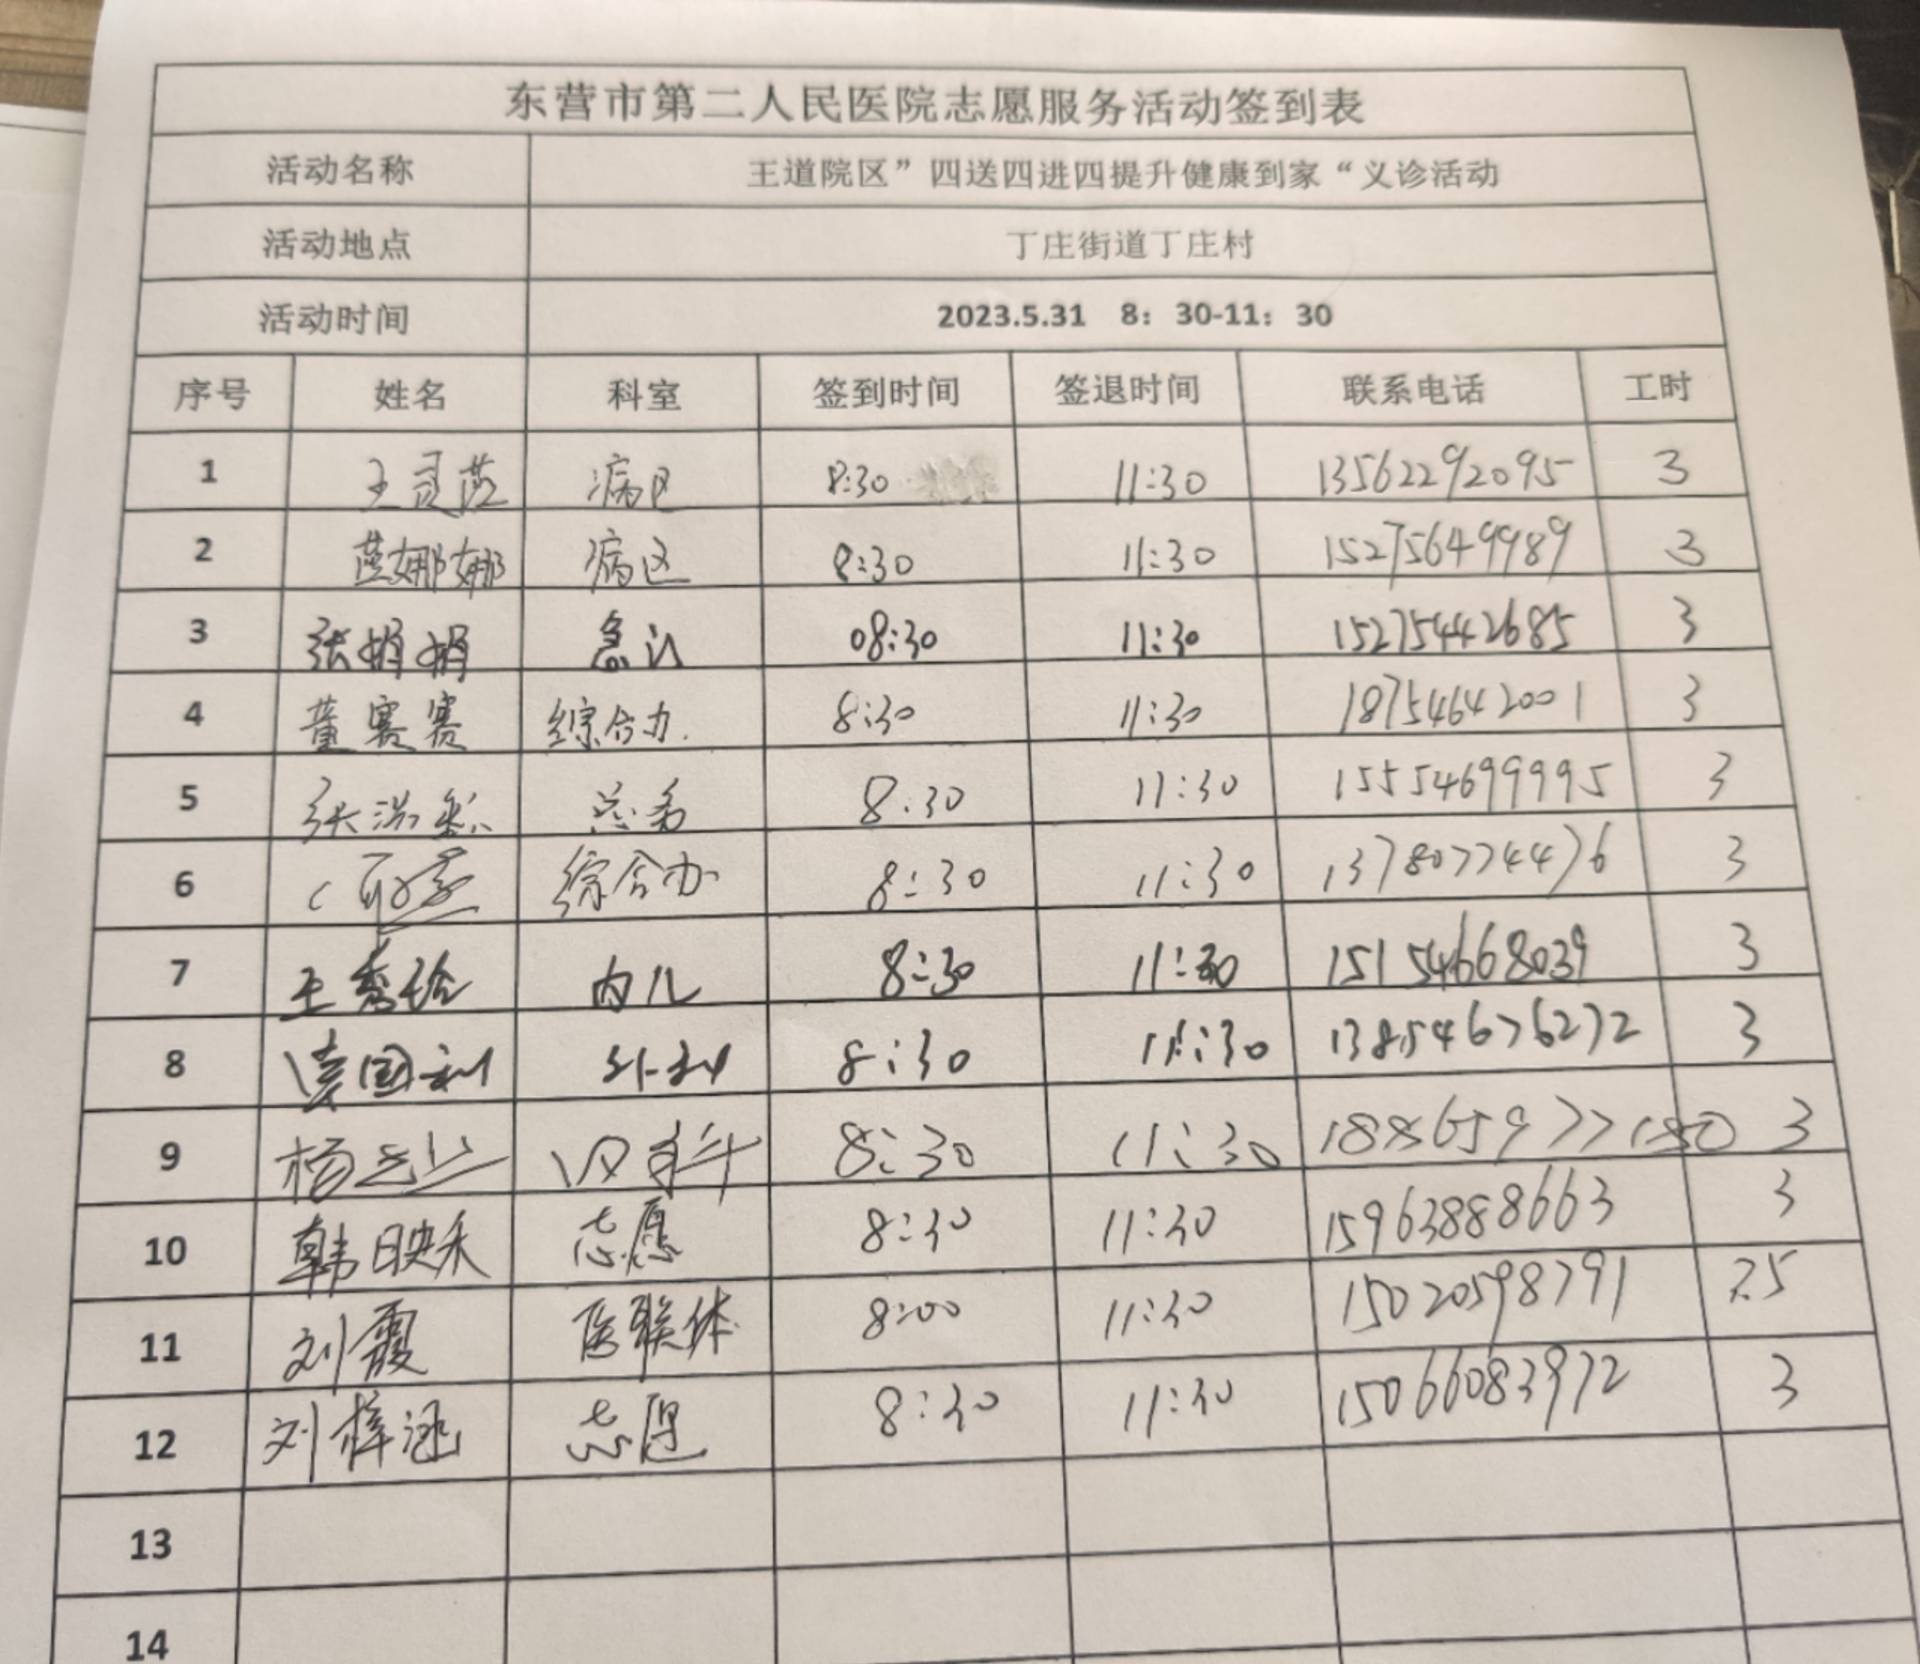 东营市第二人民医院志愿服务活动签到表
活动名称 王道院区”四送四进四提升健康到家“义诊活动
活动地点 丁庄街道丁庄村
活动时间 2023.5.31 8：30-11：30
序号 姓名 科室 签到时间 签退时间 联系电话 工时
1 病区 8:30 11:30 13562292095 3
2 病区 8:30 11:30 15275649989 3
3 张娟娟 急诊 08:30 11:30 15275442685 3
4 董赛赛 综合办 8:30 11:30 18754642001 3
5 总务 8:30 11:30 15554699995 3
6 综合办 8:30 11:30 13780774476 3
7 王秀玲 内儿 8:30 11:30 15154668039 3
8 国利 外科 8:30 11:30 13854676272 3
9 杨 8:30 11:30 3
10 韩映禾 志愿 8:30 11:30 15963888663 3
11 刘霞 医联体 8:00 11:30 15020598791
12 刘梓涵 志愿 8:30 11:30 15066083972 3
13
14